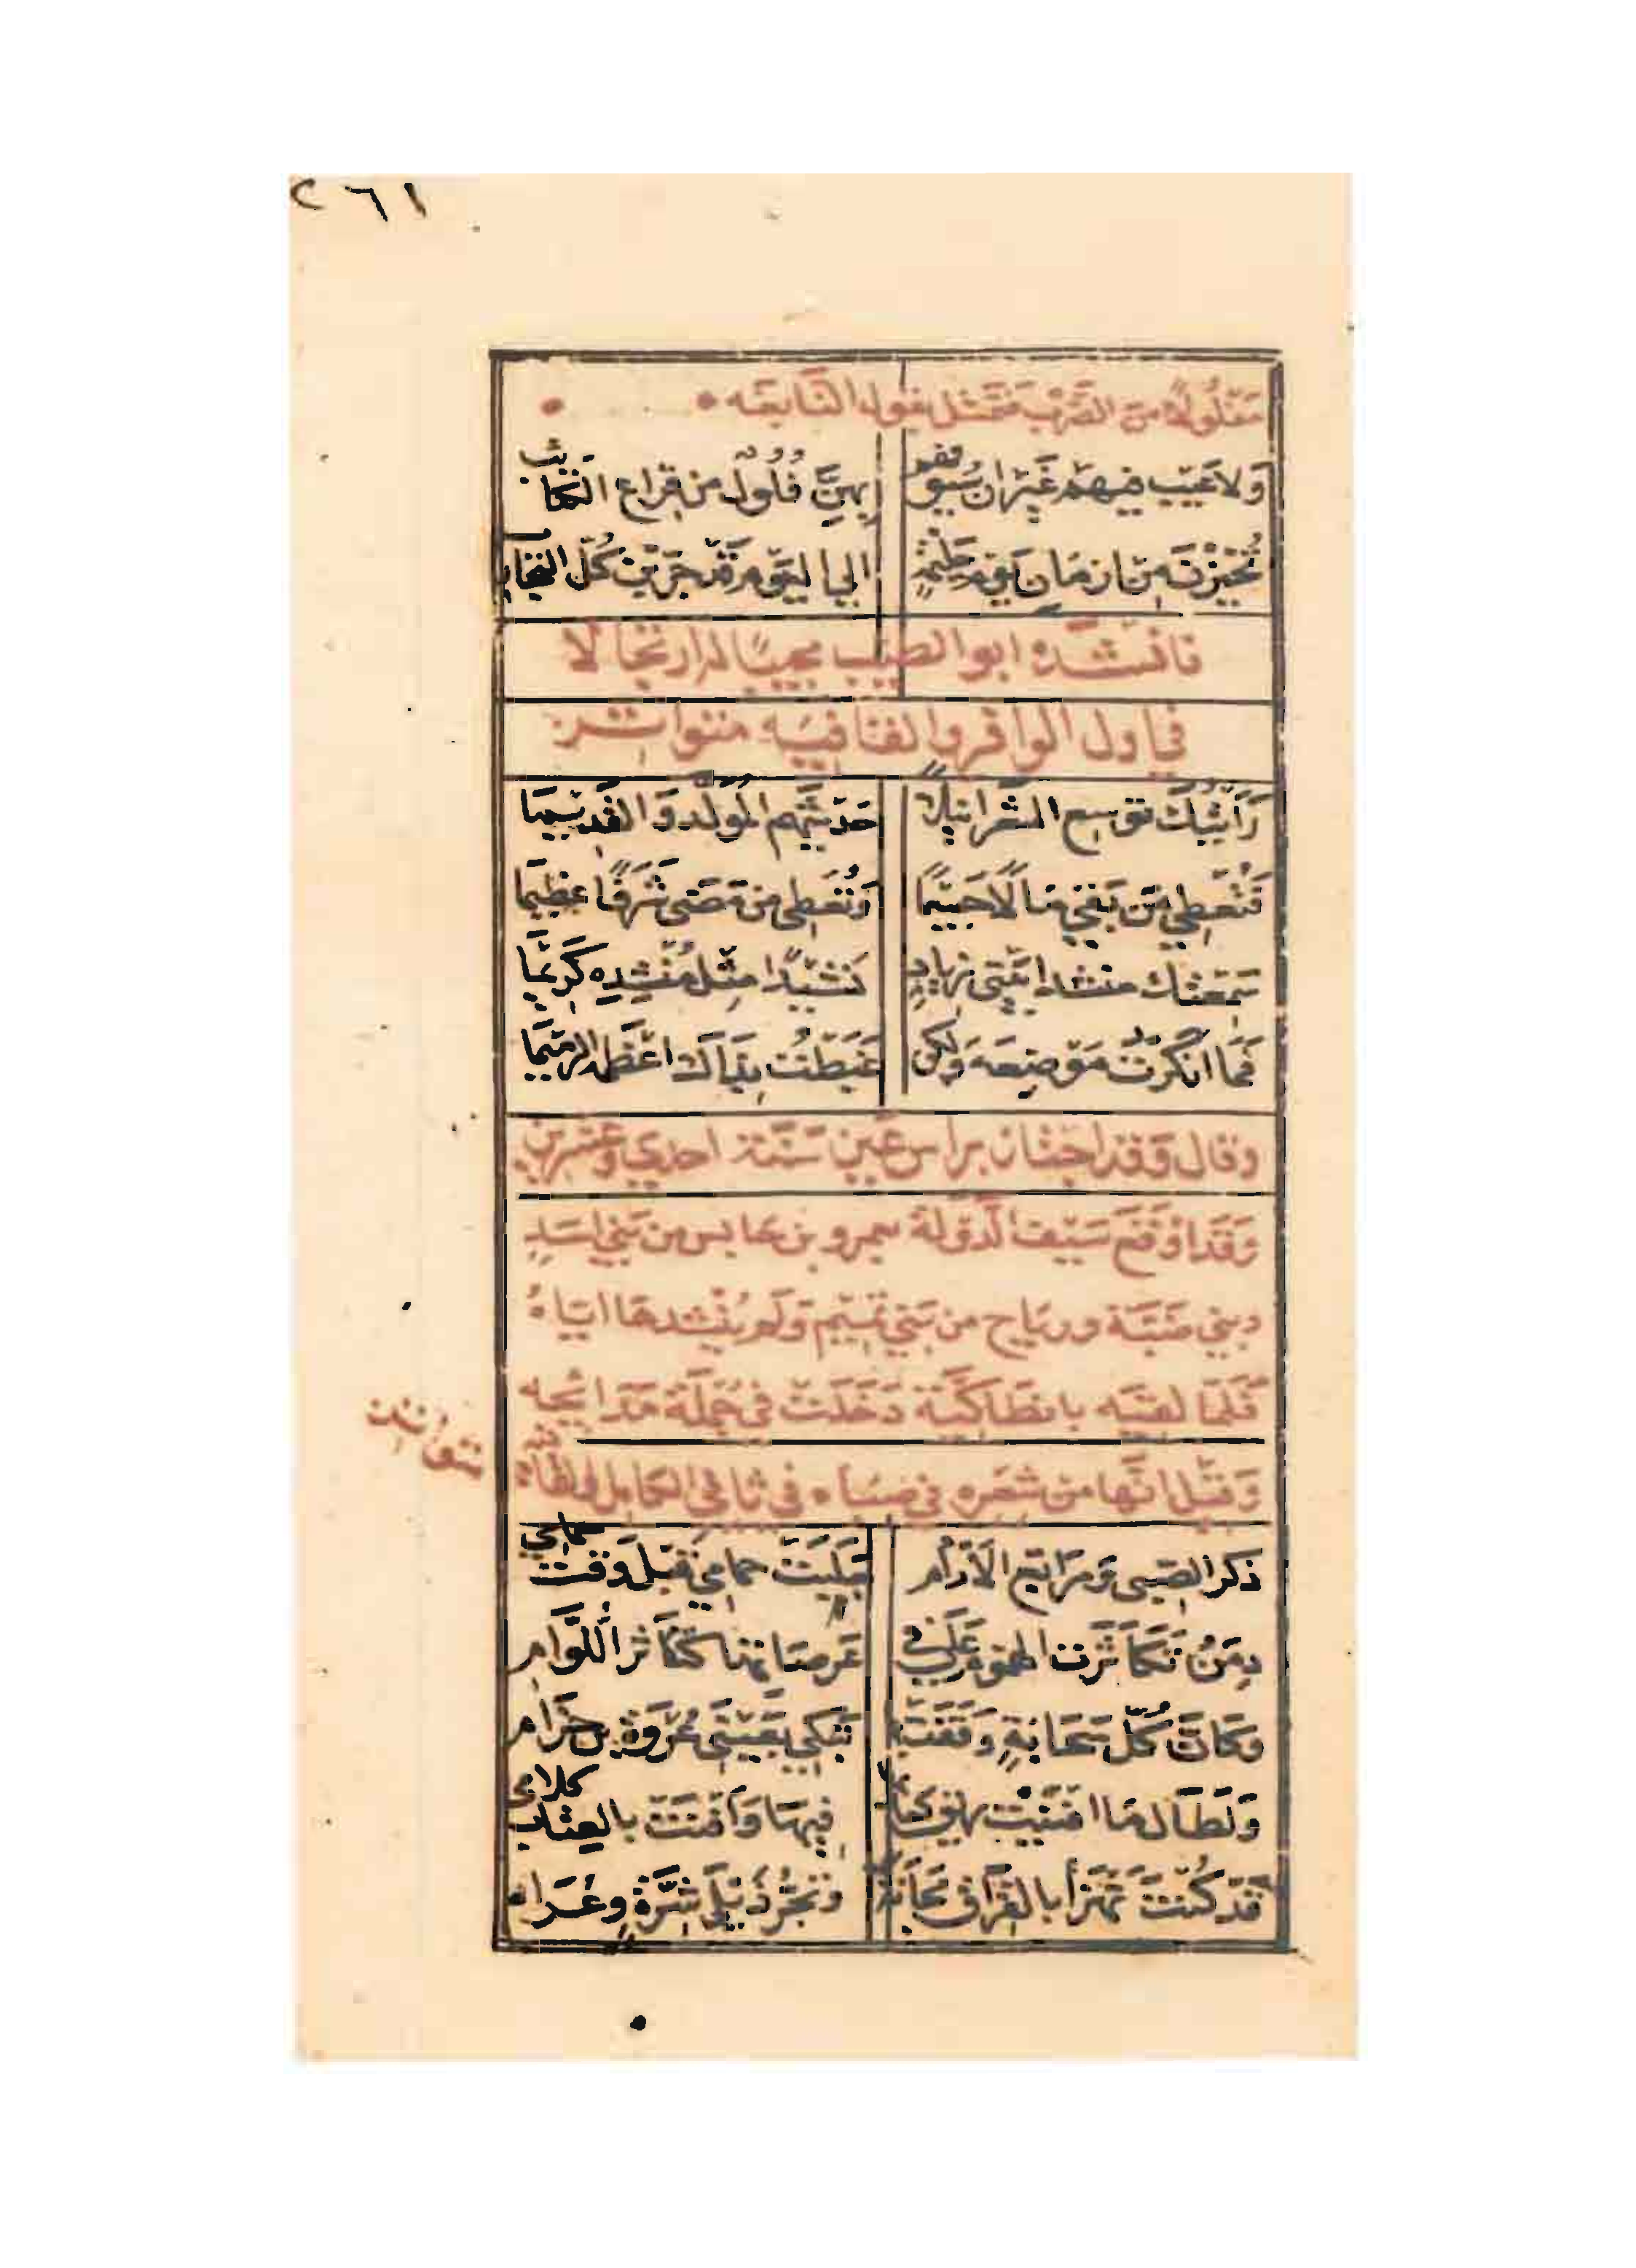 ٢٦١
مَفْلُولًا من الضرب فتمثل بقول النابغه
وَلا عَيْبَ فيهم غَيْرَ ان سُيوفهم بِهِنَّ فُلُولٌ من قراع الكتائب
تُخيّرْنَ من ازمان يَوْم حَليمةٍ الى اليَوْم قَدْ جَرّبْنَ كُلّ التجارب
فانشده ابو الطيب مجيبًا له ارتجالا
في اول الوافر والقافيه متواتر
رَأَيْتُكَ توسع الشعراء نيلًا حَديثَهُم المُولّد وَالقديما
فَتُعْطي مَن بَقي مَالًا جَسيمًا وَتُعطى من مَضى شَرَفًا عظيما
سَمِعتك منشدا بَيْتي زيادٍ نَشيدًا مِثل مُنشِدِه كَريمًا
فَمَا انكَرتُ مَوْضِعَه وَلكن غَبَطْتُ بِذَاكَ اعْظمه الرميما
وقال وَقد اجتاز براس عَين سَنَة احدي وعشرين
وَقَد اوْقَعَ سَيْف الدَّوْلة بعمرو بن حابس من بَني اسَدِ
وبني ضَبّة ورياح من بَني تميم وَلم يُنشدها اياهُ
فَلما لقيه بانطَاكيّة دَخَلَتْ في جملَة مَدَائحِه
وَقيل انَّها من شعره في صباه في ثاني الكامل والقافية
متواتر
ذكر الصبى وَمَرَاتع الآرَام جَلَبَتْ حمامي قبل وَقت حمامي
دِمَنٌ تَكَاثَرَت الهموم عَلَي في عَرصَاتهَا كتكَاثر اللُّوام
وَكَانَّ كُلّ سَحَابَةٍ وَقَفَتْ بها تَبْكي بعَيْنَي عُرْوَة بن حِزَام
وَلَطَالمَا افنَيْت ريق كعَابها فيهَا وَافْنَتْ بالعِتَاب كلامي
قَد كُنتَ تَهْزَأ بالفِرَاق مَجَانَةً وَتَجُرُّ ذَيْلَي شِرَّةٍ وعُرَام